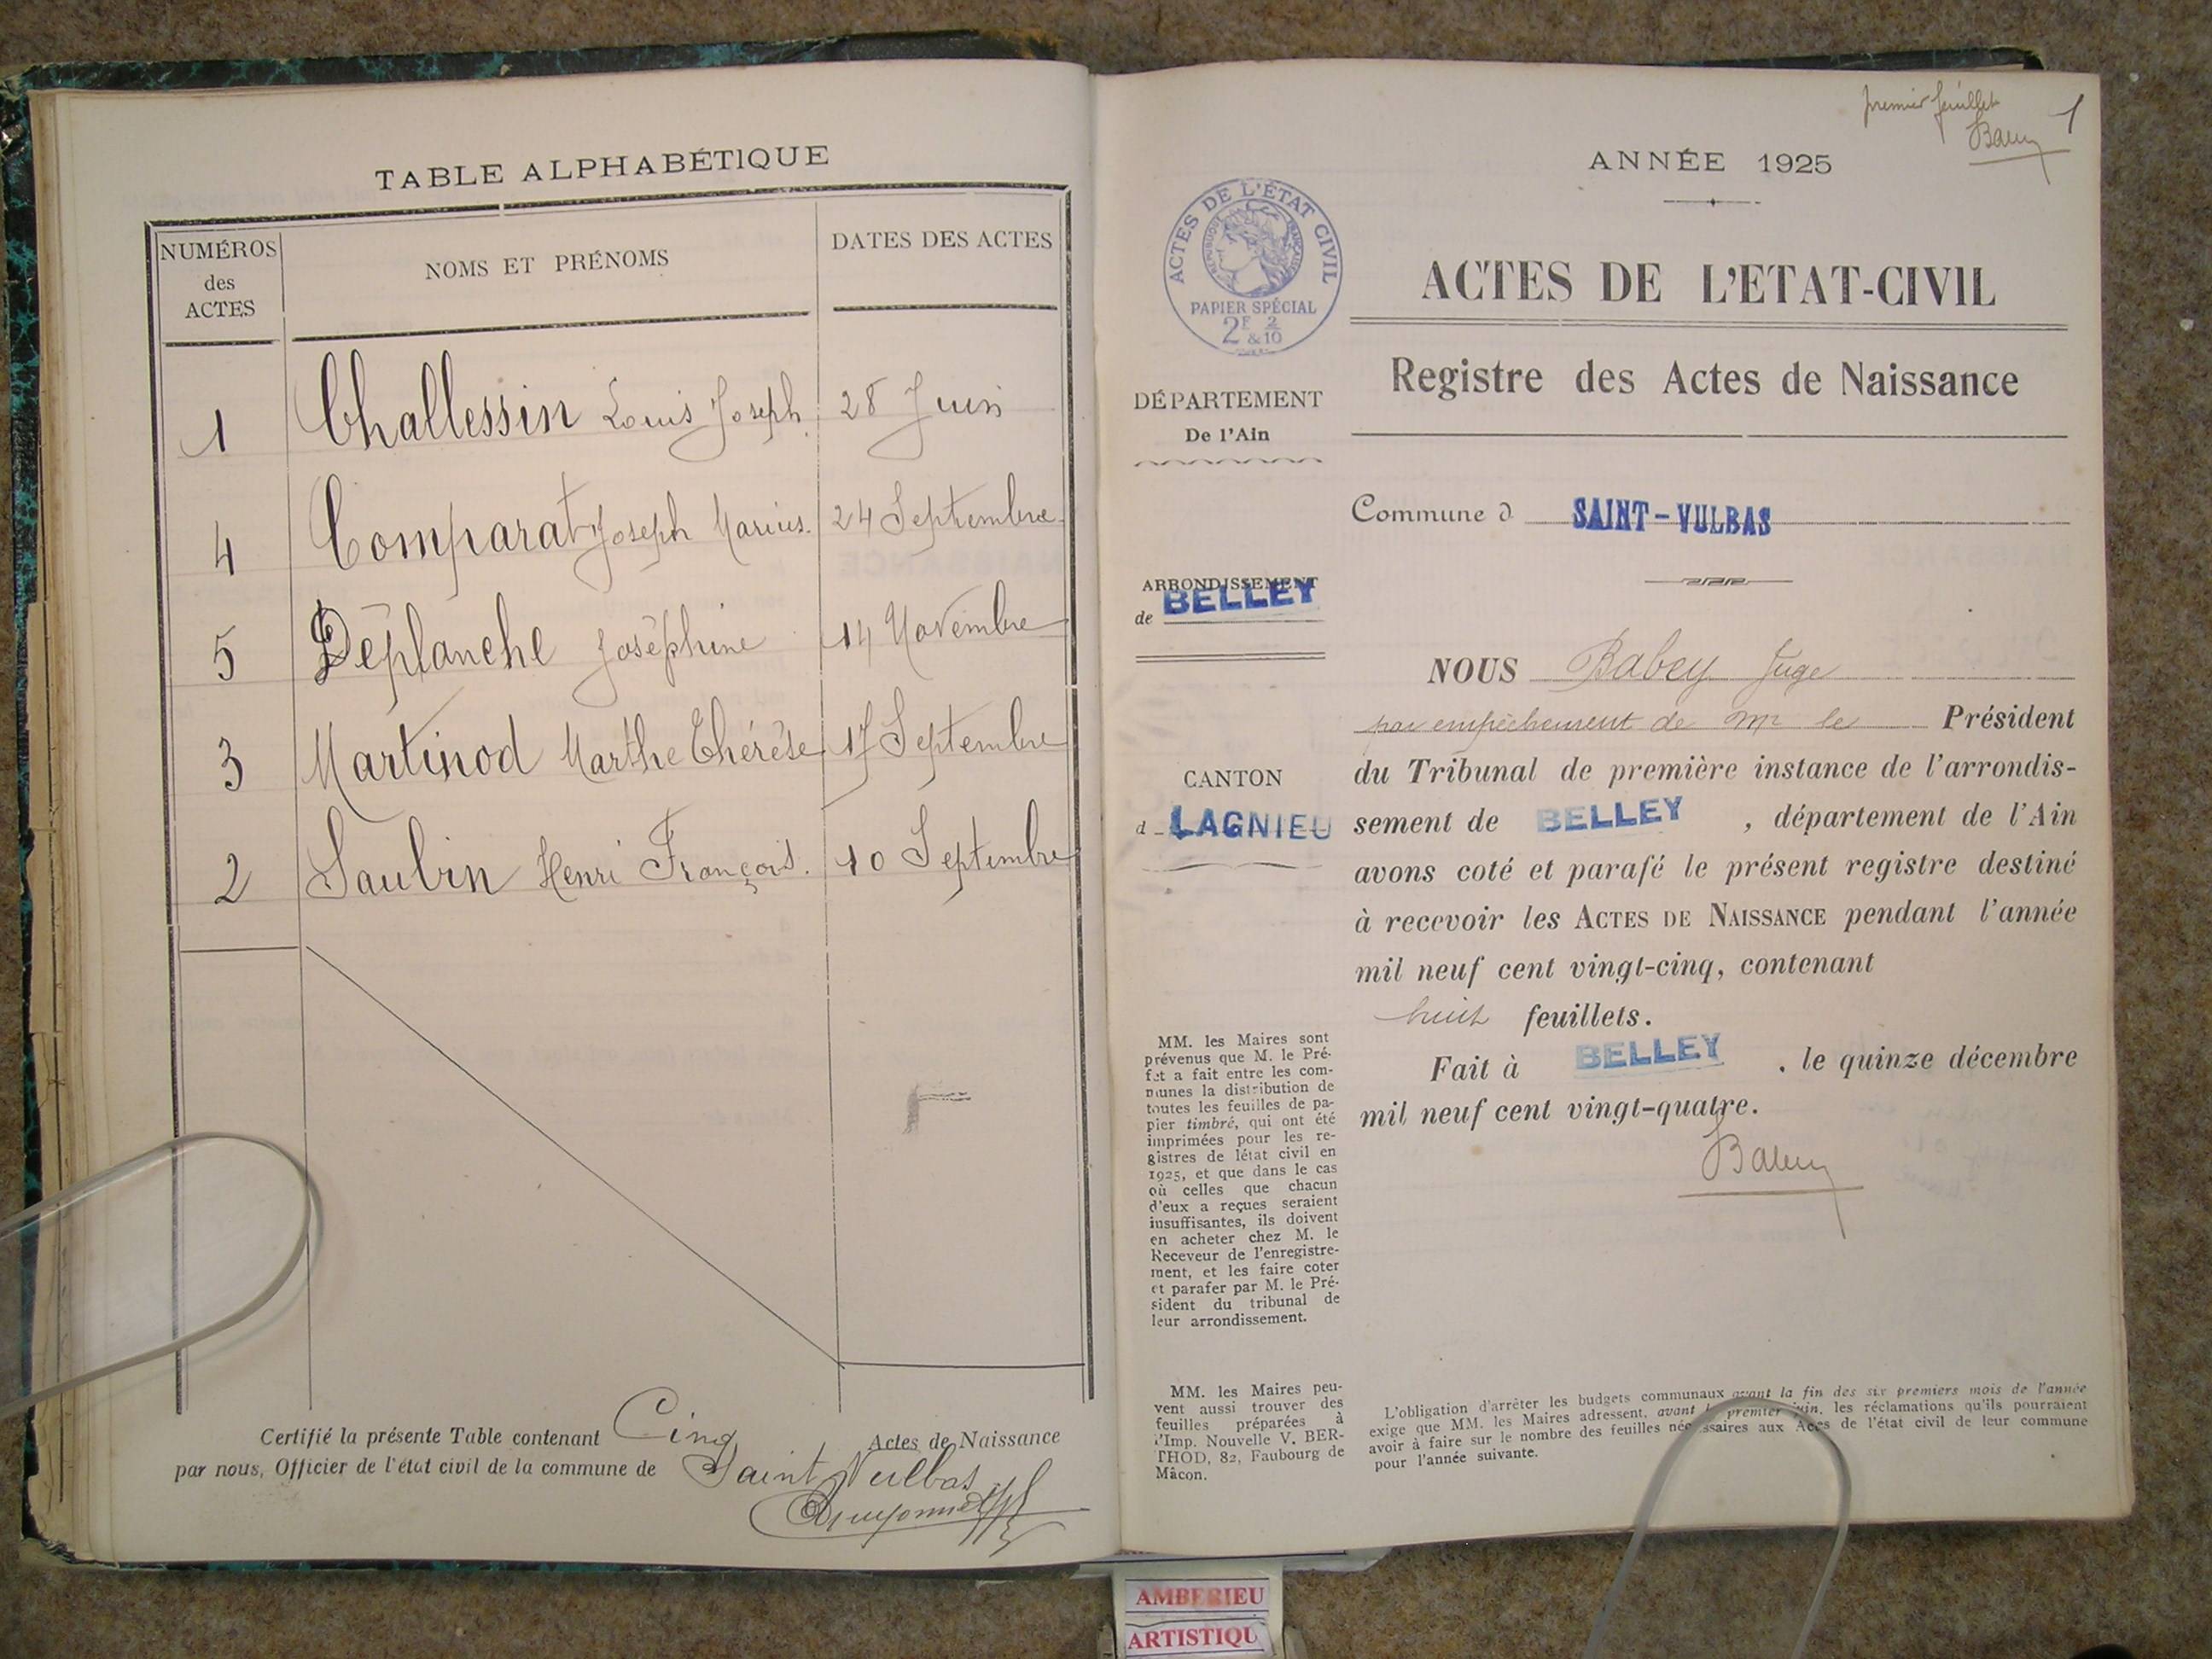 TABLE ALPHABÉTIQUE
NUMÉROS
des
ACTES
NOMS ET PRÉNOMS
DATES DES ACTES
1 Challessin Louis Joseph 28 Juin
4 Comparat Joseph Marius. 24 Septembre
5 Déplanche Joséphine 14 Novembre
3 Martinod Marthe Thérèse 17 Septembre
2 Saubin Henri François. 10 Septembre
Certifié la présente Table contenant Cinq Actes de Naissance
par nous, Officier de l'état civil de la commune de Saint Vulbas
premier feuillet
1
Babey
ANNÉE 1925
ACTES DE L'ÉTAT CIVIL
RÉPUBLIQUE FRANÇAISE
PAPIER SPÉCIAL
2F & 2/10
ACTES DE L'ETAT-CIVIL
Registre des Actes de Naissance
DÉPARTEMENT
De l'Ain
Commune d SAINT-VULBAS
ARRONDISSEMENT
de BELLEY
CANTON
d LAGNIEU
NOUS Babey Juge
par empêchement de Mr le Président
du Tribunal de première instance de l'arrondis-
sement de BELLEY, département de l'Ain
avons coté et parafé le présent registre destiné
à recevoir les ACTES DE NAISSANCE pendant l'année
mil neuf cent vingt-cinq, contenant
huit feuillets.
Fait à BELLEY, le quinze décembre
mil neuf cent vingt-quatre.
Babey
MM. les Maires sont
prévenus que M. le Pré-
fet a fait entre les com-
munes la distribution de
toutes les feuilles de pa-
pier timbré, qui ont été
imprimées pour les re-
gistres de létat civil en
1925, et que dans le cas
où celles que chacun
d'eux a reçues seraient
insuffisantes, ils doivent
en acheter chez M. le
Receveur de l'enregistre-
ment, et les faire coter
et parafer par M. le Pré-
sident du tribunal de
leur arrondissement.
MM. les Maires peu-
vent aussi trouver des
feuilles préparées à
l'Imp. Nouvelle V. BER-
THOD, 82, Faubourg de
Mâcon.
L'obligation d'arrêter les budgets communaux avant la fin des six premiers mois de l'année
exige que MM. les Maires adressent, avant le premier juin, les réclamations qu'ils pourraient
avoir à faire sur le nombre des feuilles nécessaires aux Actes de l'état civil de leur commune
pour l'année suivante.
AMBERIEU
ARTISTIQU